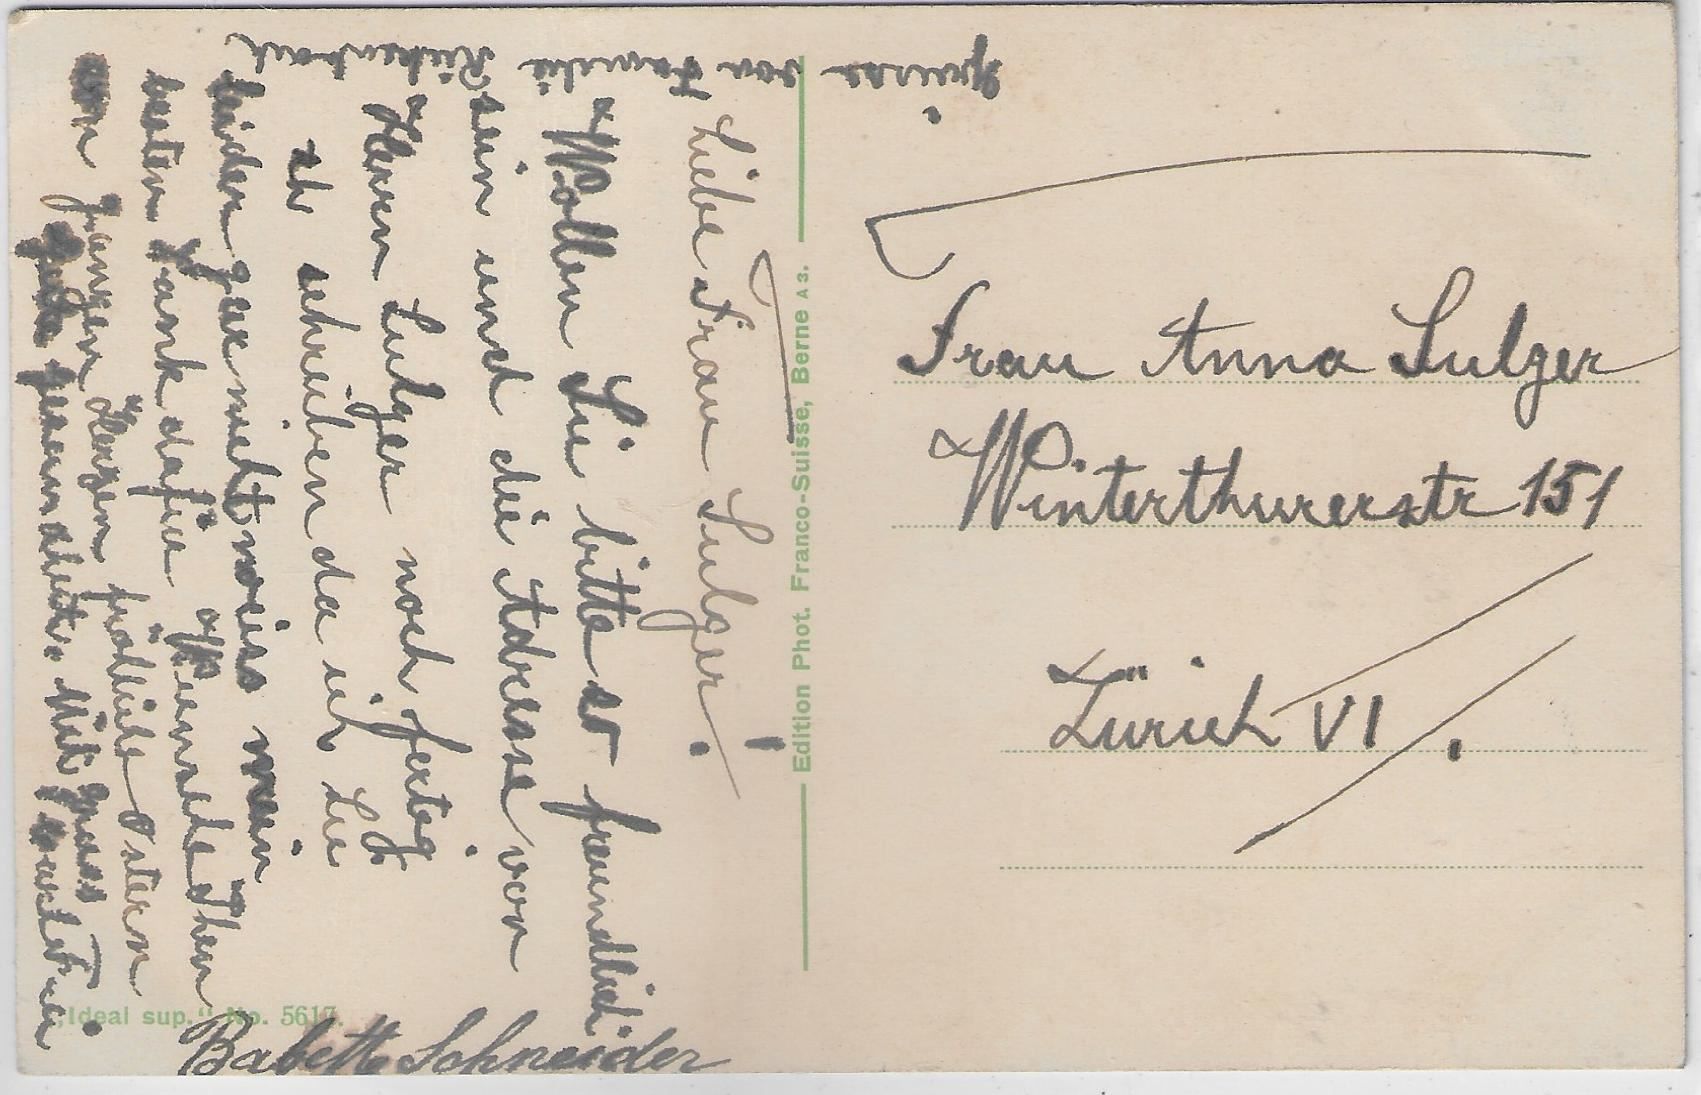 Liebe Frau Sulger!
Wollen Sie bitte so freundlich
sein und die Adresse von
Herrn Sulger noch fertig
schreiben da ich Sie
leider gar nicht weiss mein
besten Dank dafür Wünsche Ihnen
von ganzem Herzen fröhliche Ostern
Mit Gruss
Babette Schneider
Grüsse von Familie
Edition Phot. Franco-Suisse, Berne A 3.
„Ideal sup.“ No. 5617.
Frau Anna Sulger
Winterthurerstr 151
Zürich VI.